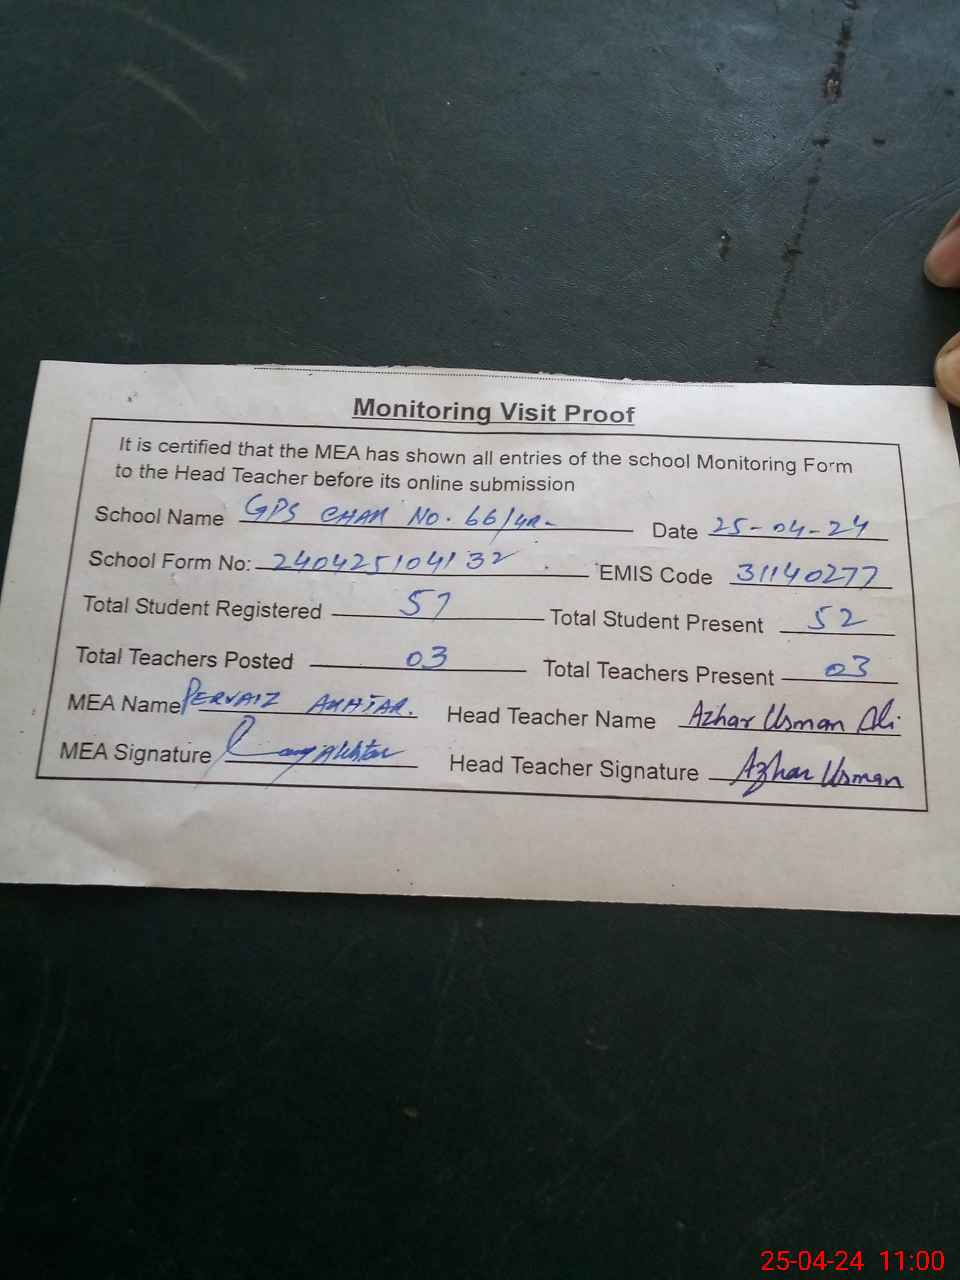 Monitoring Visit Proof
It is certified that the MEA has shown all entries of the school Monitoring Form
to the Head Teacher before its online submission
School Name GPS CHAK NO. 66/4R- Date 25-04-24
School Form No: 240425104132 EMIS Code 31140277
Total Student Registered 57 Total Student Present 52
Total Teachers Posted 03 Total Teachers Present 03
MEA Name PERVAIZ AKHTAR. Head Teacher Name Azhar Usman Ali
MEA Signature Akhtar Head Teacher Signature Azhar Usman
25-04-24 11:00